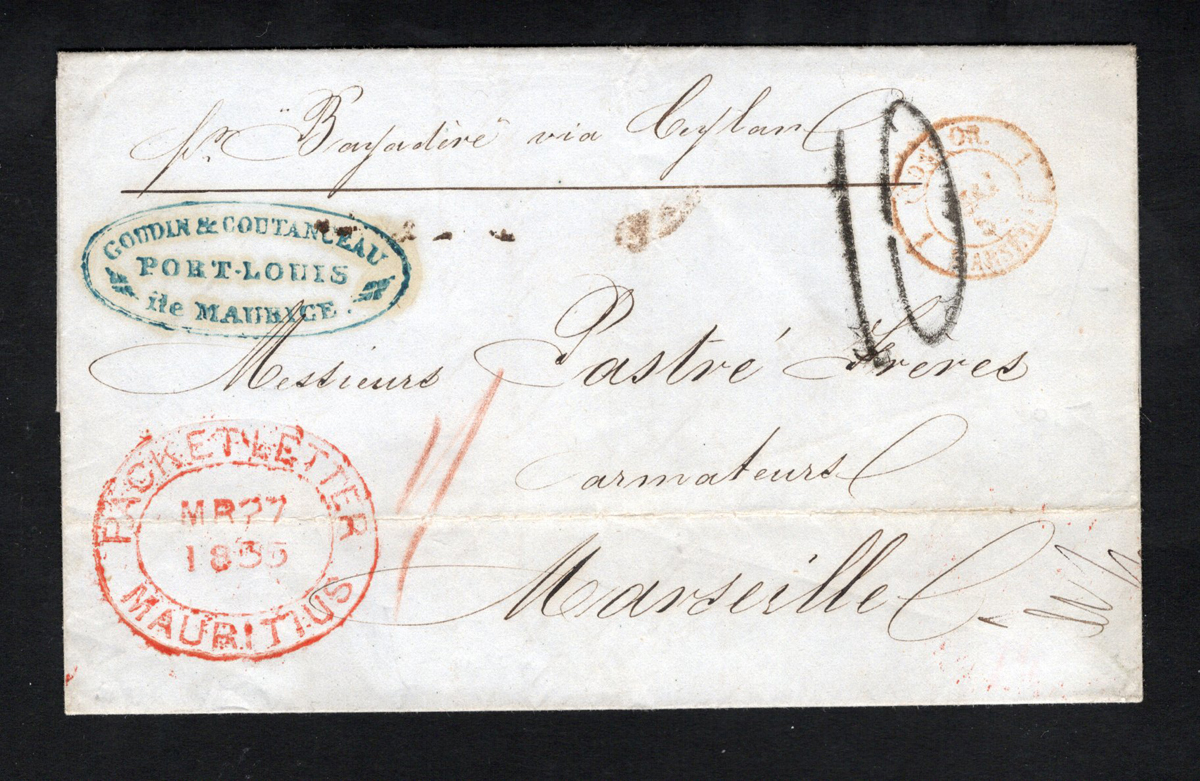 pr "Bayadère" via Ceylan
10
GOUDIN & COUTANCEAU
PORT-LOUIS
île MAURICE.
Messieurs Pastré Freres
armateurs
Marseille
PACKET LETTER
MR 27
1855
MAURITIUS